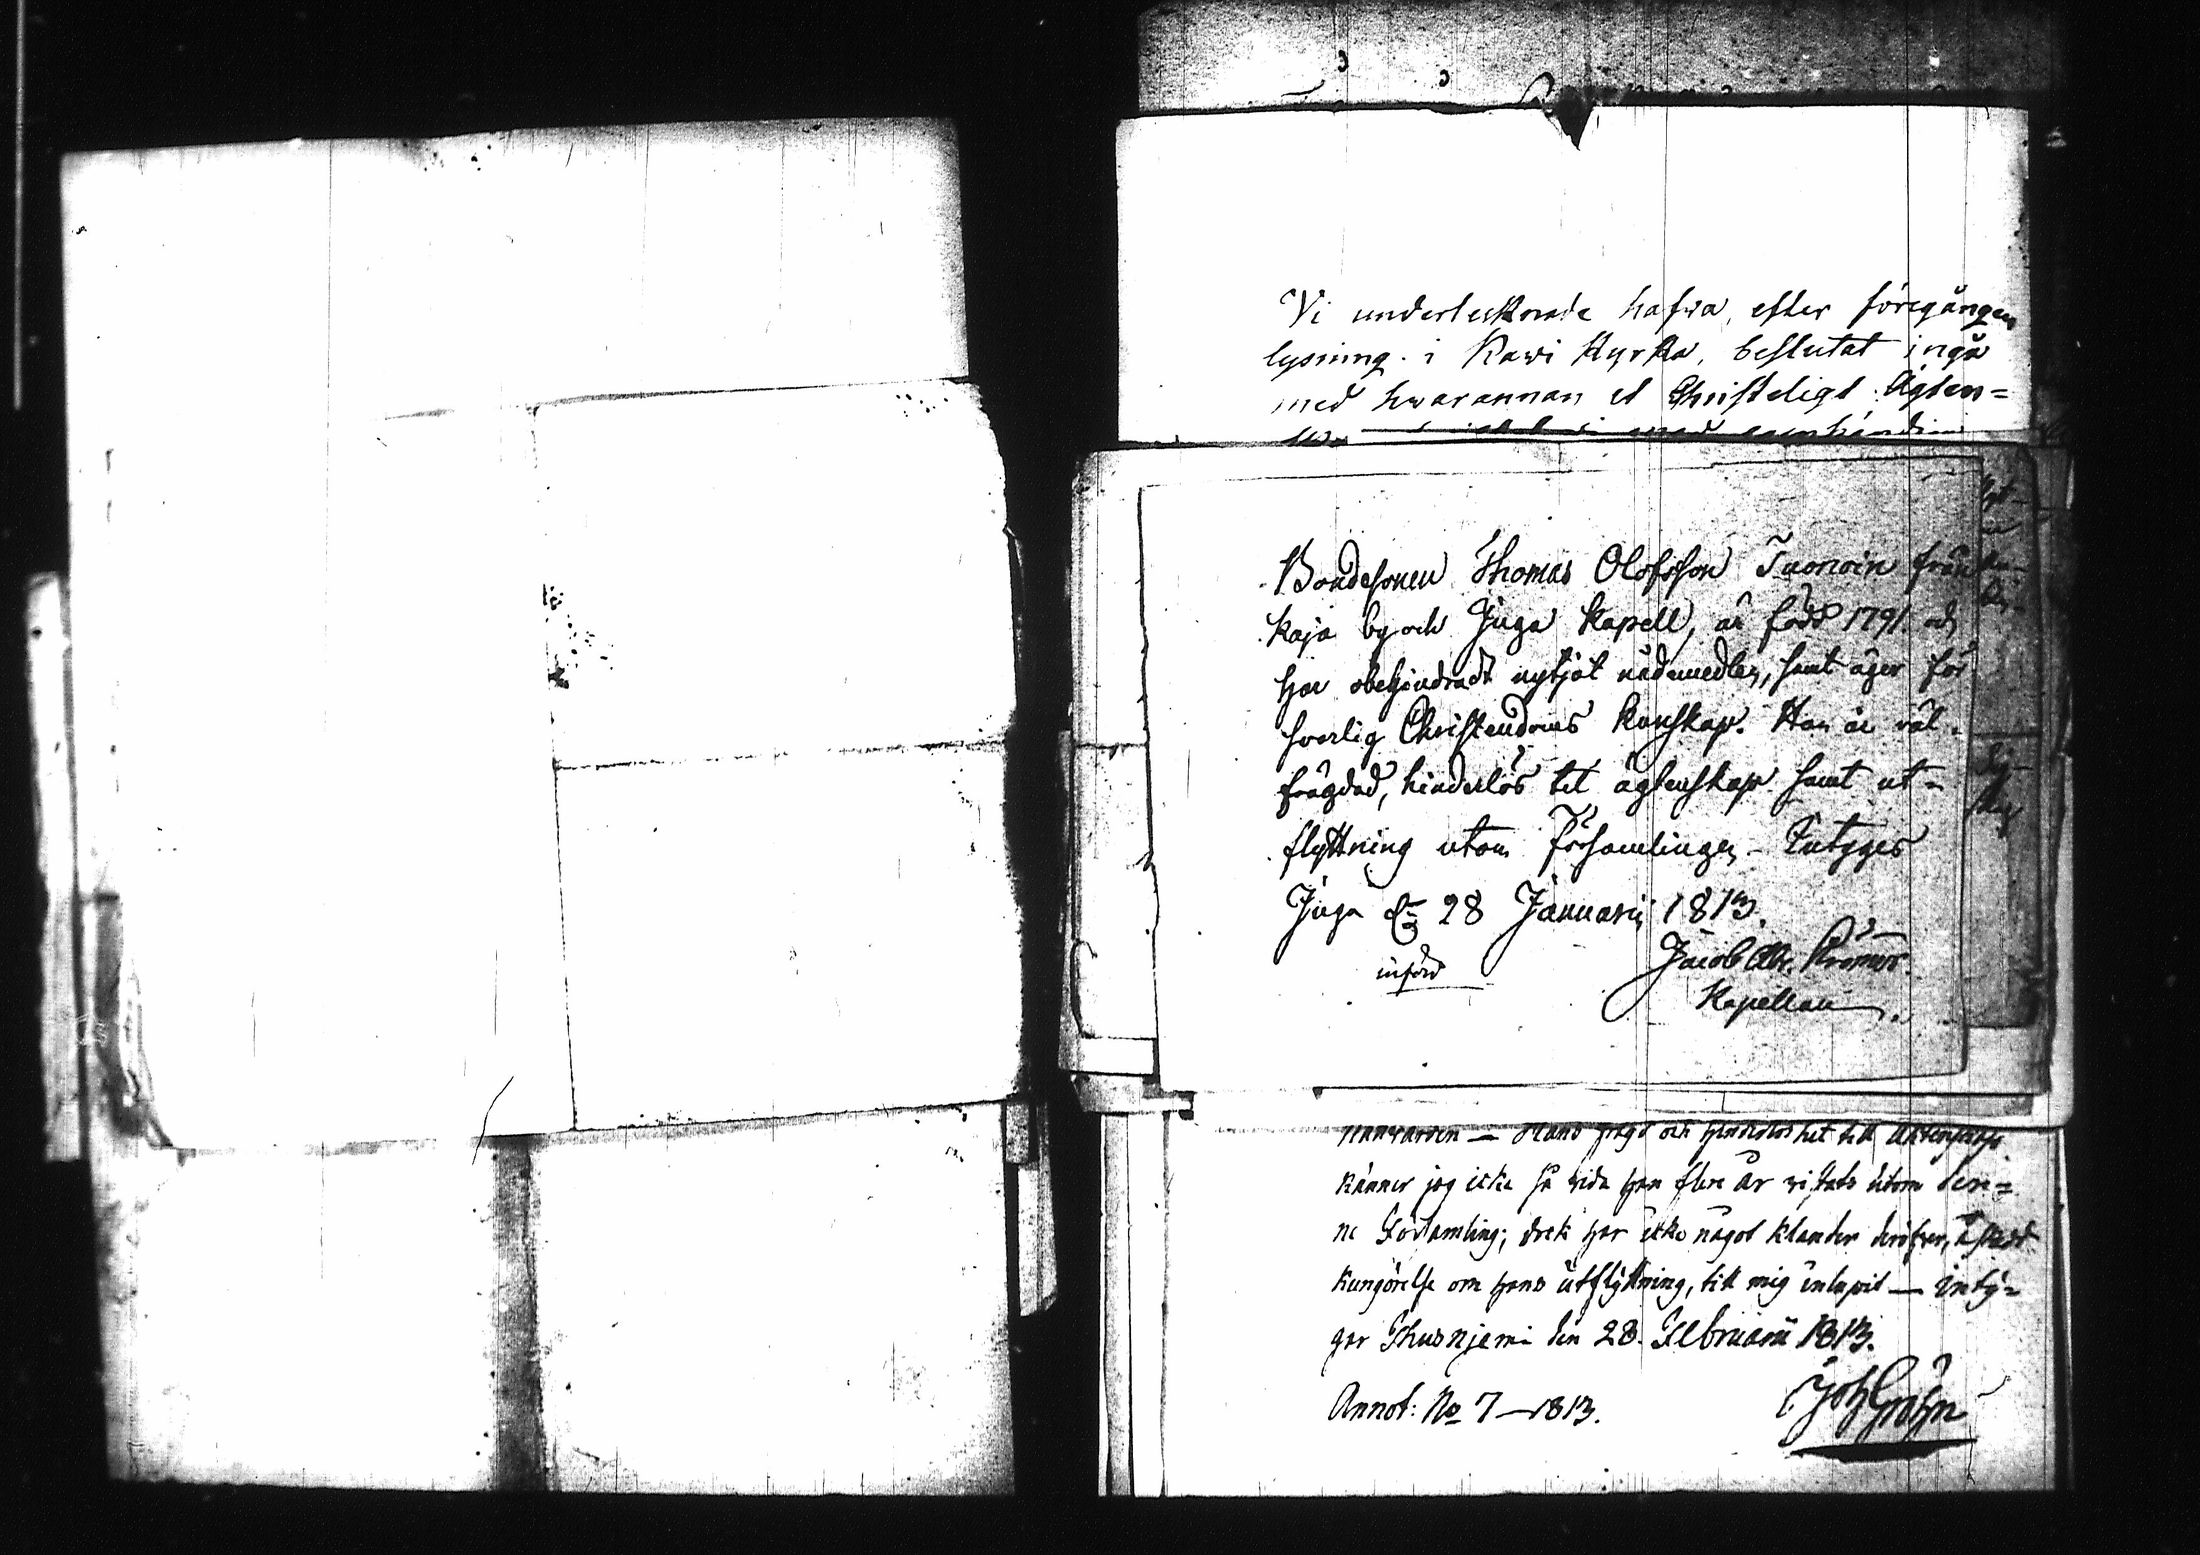 Vi undertecknade hafva, efter föregången
lysning i Kavi Kyrka, beslutat ingå
med hvarannan et Christeligt Ägten=
Bondesonen Thomas Olofsson Tuonoin från
kaja by och Juga Kapell, är född 1791. och
har obehindradt nytjat nådemedlen, samt äger för
svarlig Christendoms kunskap. Han är väl
frägdad, hinderlös til ägtenskap samt ut=
flyttning utom Församlingen. Intyges
Juga d. 28 Januarii 1813.
införd
Jacob
Kapellan
känner jog icke så vida han flere år vistats utom den=
ne Församling; dock har icke något klander deröfver, å skedd
kungörelse om hans utflyttning, till mig inlupit — inty=
gar Thusnjemi den 28. Februarii 1813.
Annot: No 7 — 1813.
Joh Gröhn